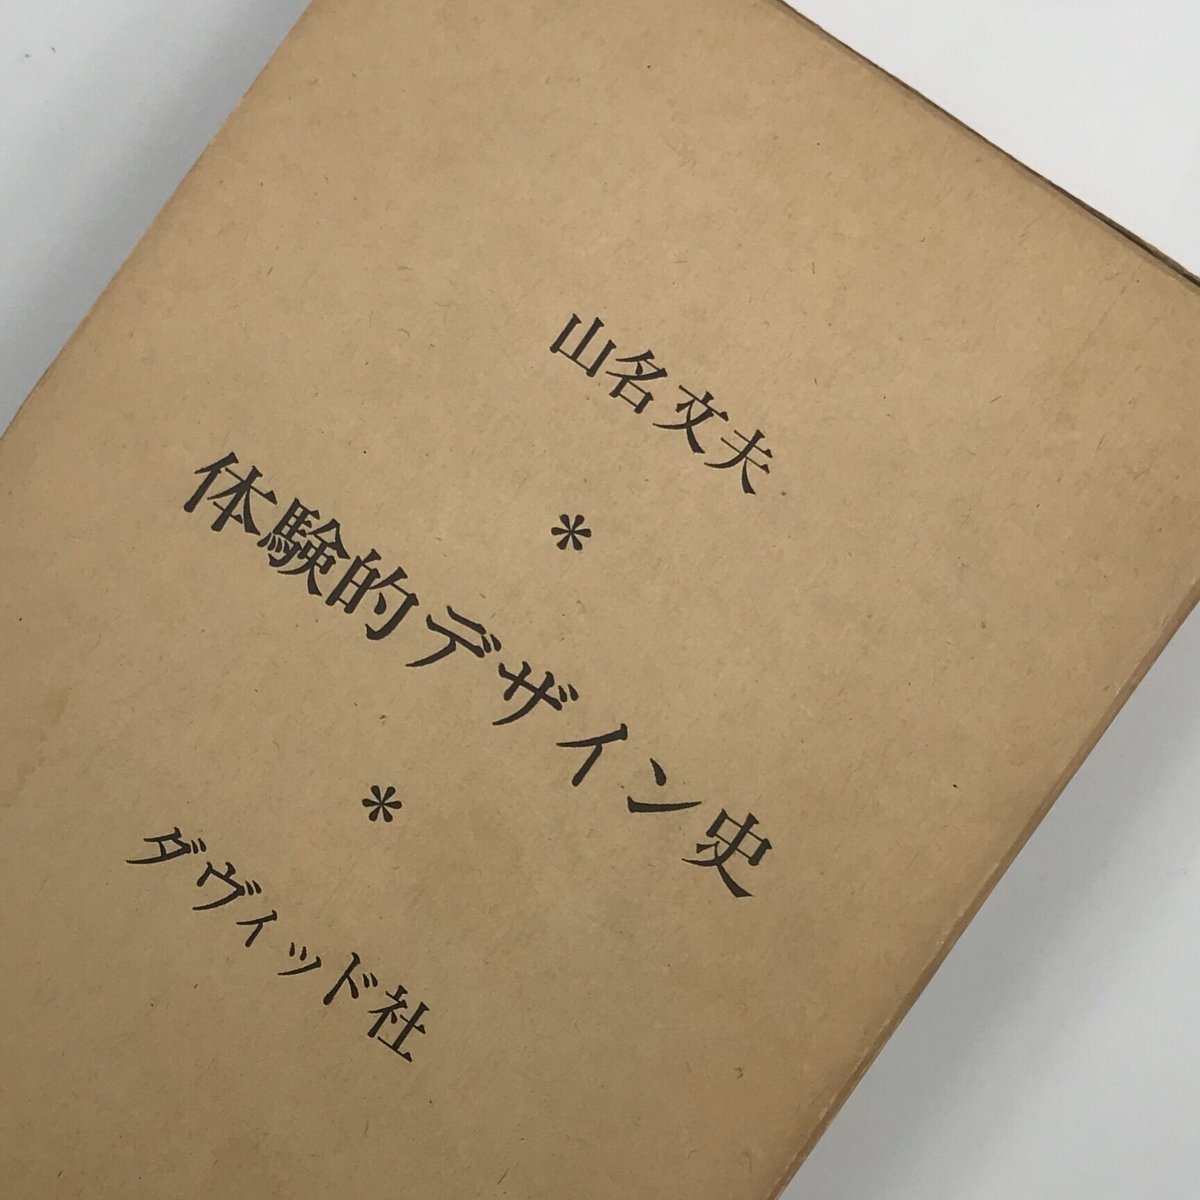 山名文夫
*
体験的デザイン史
*
ダヴィッド社